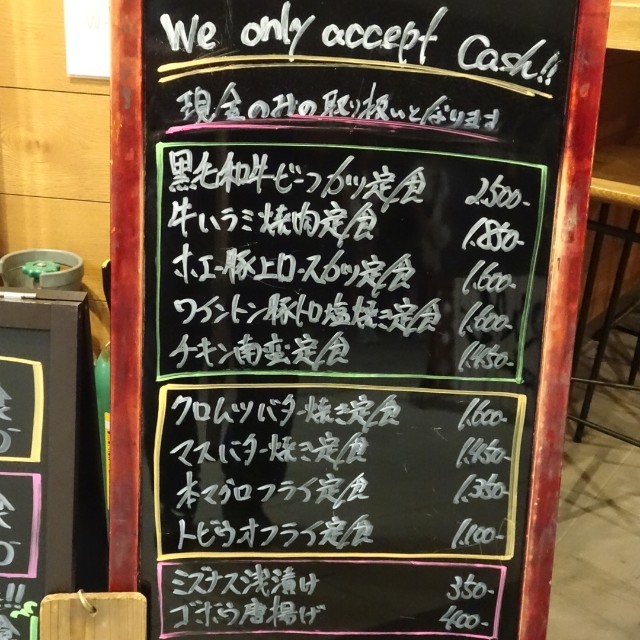 We only accept Cash!!
現金のみの取り扱いとなります
黒毛和牛ビーフカツ定食 2,500-
牛ハラミ焼肉定食 1,850-
ホエー豚上ロースカツ定食 1,600-
ワイントン豚トロ塩焼き定食 1,600-
チキン南蛮定食 1,450-
クロムツバター焼き定食 1,600-
マスバター焼き定食 1,450-
本マグロフライ定食 1,350-
トビウオフライ定食 1,100-
ミズナス浅漬け 350-
ゴボウ唐揚げ 400-